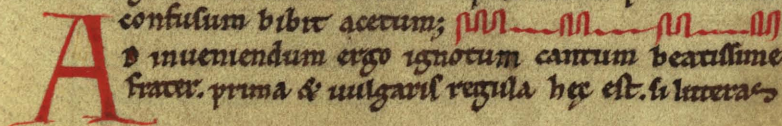 confusum bibit acetum;
AD inueniendum ergo ignotum cantum beatissime
frater. prima & uulgaris regula hęc est. si litteras